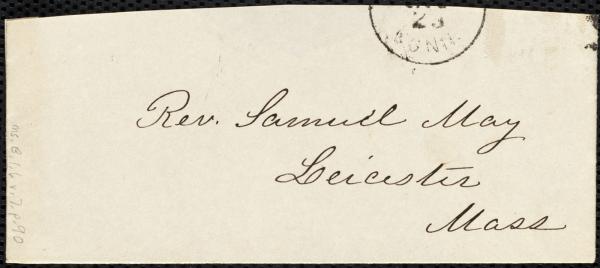 23
CONN.
Rev. Samuel May
Leicester
Mass
Ms B.1.6 v.17, p.90